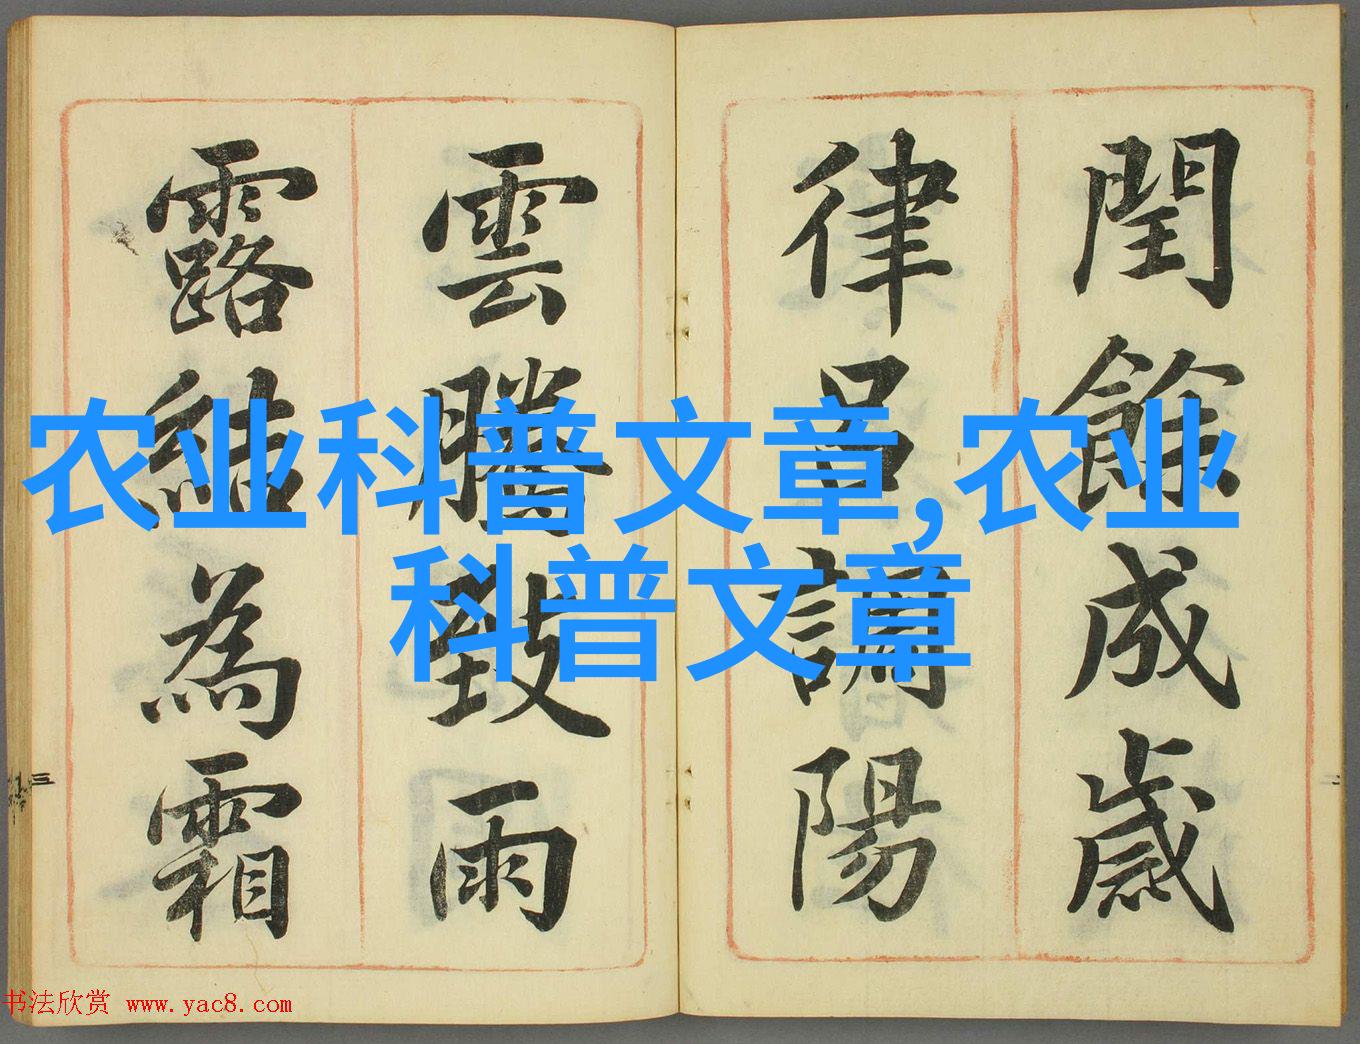 閏餘成歲
律呂調陽
雲騰致雨
露結為霜
农业科普文章,农业
科普文章
三
二
书法欣赏 www.yac8.com